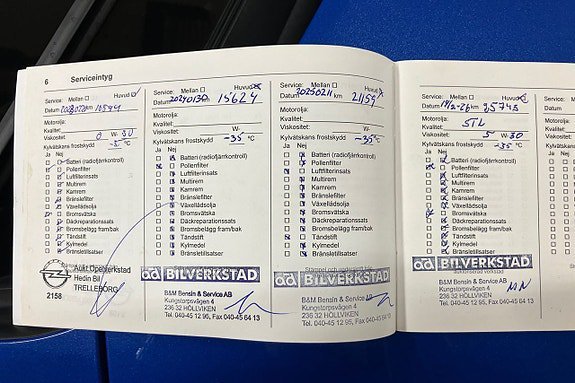 6 Serviceintyg
Service: Mellan Huvud
Datum km
Motorolja:
Kvalitet:
Viskositet: 0 W- 30
Kylvätskans frostskydd °C
Ja Nej
Batteri (radiofjärrkontroll)
Pollenfilter
Luftfilterinsats
Multirem
Kamrem
Bränslefilter
Växellådsolja
Bromsvätska
Däckreparationssats
Bromsbelägg fram/bak
Tändstift
Kylmedel
Bränsletillsatser
Aukt Opelverkstad
Hedin Bil
TRELLEBORG
2158
Service: Mellan Huvud
Datum 20240130 km 15624
Motorolja:
Kvalitet:
Viskositet: W-
Kylvätskans frostskydd -35 °C
Ja Nej
Batteri (radiofjärrkontroll)
Pollenfilter
Luftfilterinsats
Multirem
Kamrem
Bränslefilter
Växellådsolja
Bromsvätska
Däckreparationssats
Bromsbelägg fram/bak
Tändstift
Kylmedel
Bränsletillsatser
ad BILVERKSTAD
B&M Bensin & Service AB
Kungstorpsvägen 4
236 32 HÖLLVIKEN
Tel. 040-45 12 95, Fax 040-45 64 13
Service: Mellan Huvud
Datum 20250211 km 21159
Motorolja:
Kvalitet:
Viskositet: W-
Kylvätskans frostskydd -35 °C
Ja Nej
Batteri (radiofjärrkontroll)
Pollenfilter
Luftfilterinsats
Multirem
Kamrem
Bränslefilter
Växellådsolja
Bromsvätska
Däckreparationssats
Bromsbelägg fram/bak
Tändstift
Kylmedel
Bränsletillsatser
ad BILVERKSTAD
B&M Bensin & Service AB
Kungstorpsvägen 4
236 32 HÖLLVIKEN
Tel. 040-45 12 95, Fax 040-45 64 13
Service: Mellan Huvud
Datum km 25745
Motorolja:
Kvalitet: STL
Viskositet: 5 W- 30
Kylvätskans frostskydd -35 °C
Ja Nej
Batteri (radiofjärrkontroll)
Pollenfilter
Luftfilterinsats
Multirem
Kamrem
Bränslefilter
Växellådsolja
Bromsvätska
Däckreparationssats
Bromsbelägg fram/bak
Tändstift
Kylmedel
Bränsletillsatser
ad BILVERKSTAD
B&M Bensin & Service AB
Kungstorpsvägen 4
236 32 HÖLLVIKEN
Tel. 040-45 12 95, Fax 040-45 64 13